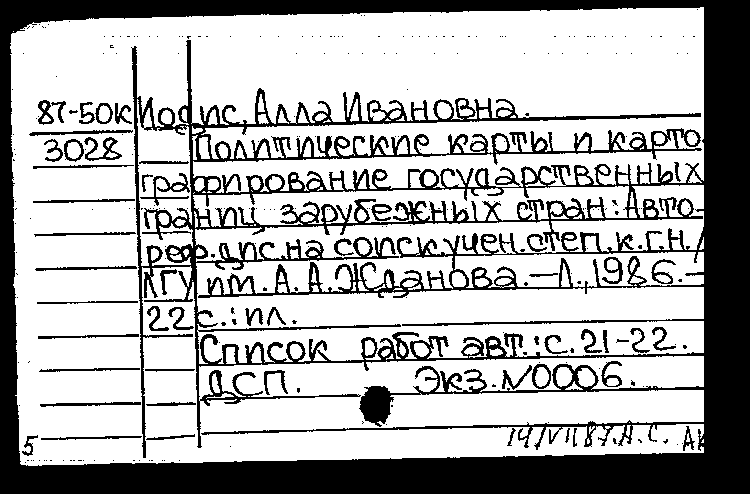 87-50К Иодис, Алла Ивановна.
3028 Политические карты и карто-
графирование государственных
границ зарубежных стран: Авто-
реф. дис. на соиск. учен. степ. к.г.н. /
ЛГУ им. А. А. Жданова. — Л., 1986. —
22 с.: ил.
Список работ авт.: с. 21-22.
ДСП. Экз. N0006.
5 14/VII 87. А. С.